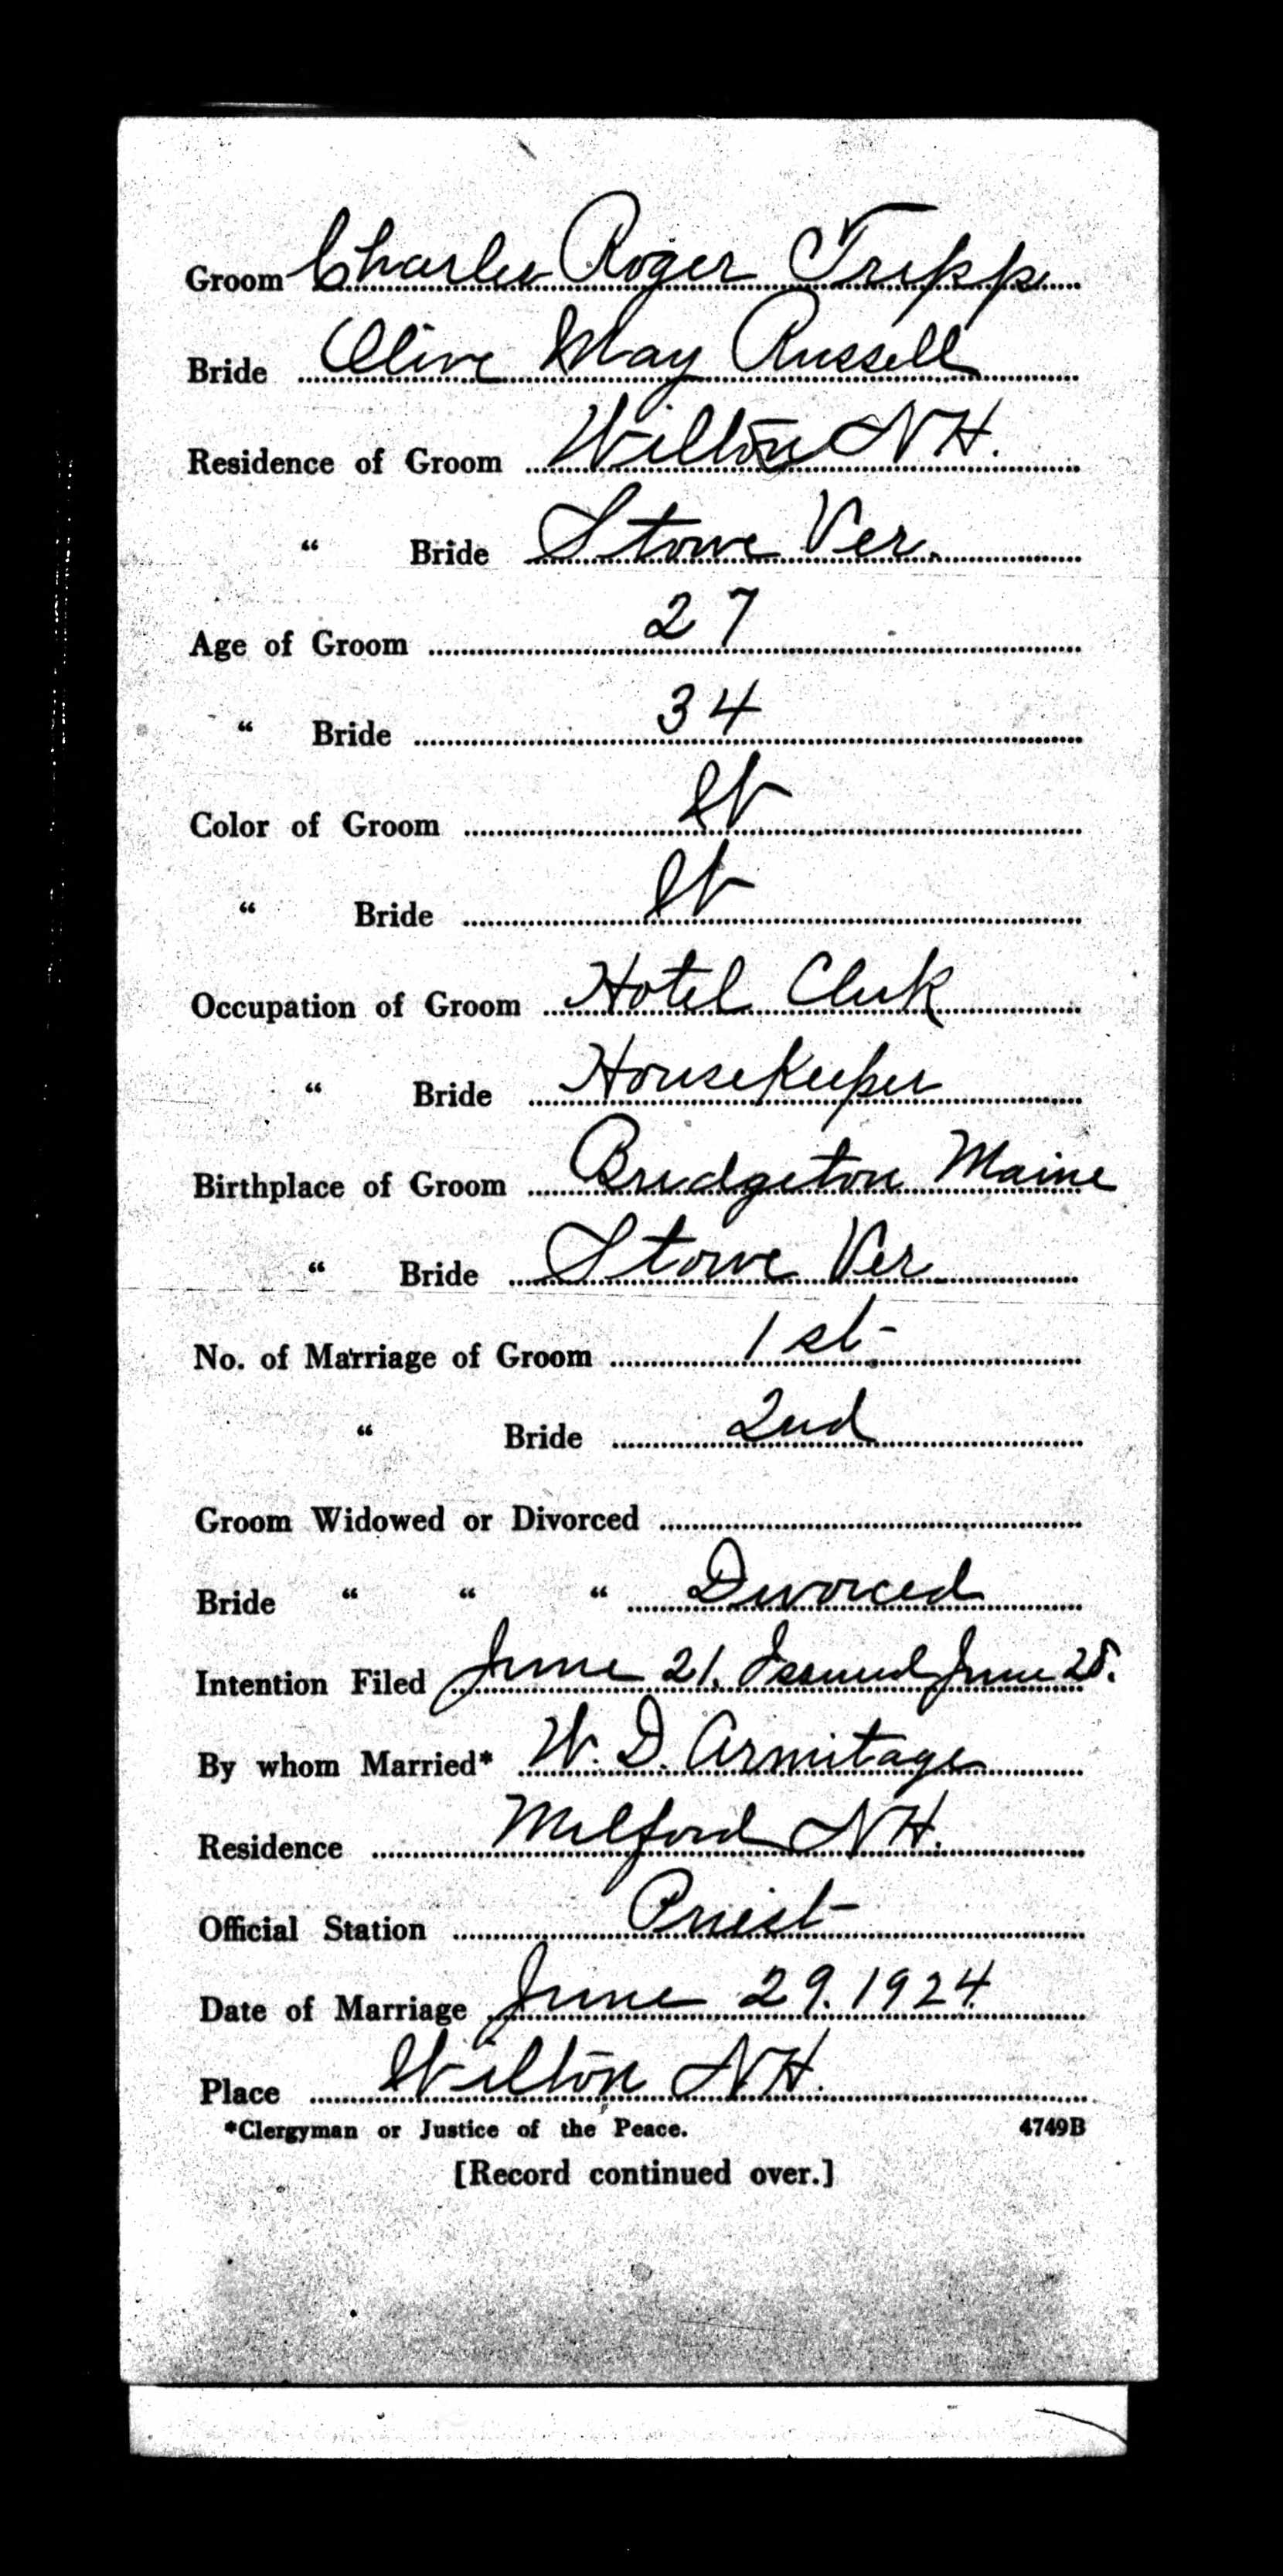 Groom Charles Roger Tripp
Bride Olive May Russell
Residence of Groom Wilton NH.
“ Bride Stowe Ver.
Age of Groom 27
“ Bride 34
Color of Groom W
“ Bride W
Occupation of Groom Hotel Clerk
“ Bride Housekeeper
Birthplace of Groom Bridgeton Maine
“ Bride Stowe Ver
No. of Marriage of Groom 1st
“ Bride 2nd
Groom Widowed or Divorced
Bride “ “ “ Divorced
Intention Filed June 21. Issued June 28.
By whom Married* W. D. Armitage
Residence Milford NH.
Official Station Priest
Date of Marriage June 29. 1924
Place Wilton NH.
*Clergyman or Justice of the Peace. 4749B
[Record continued over.]